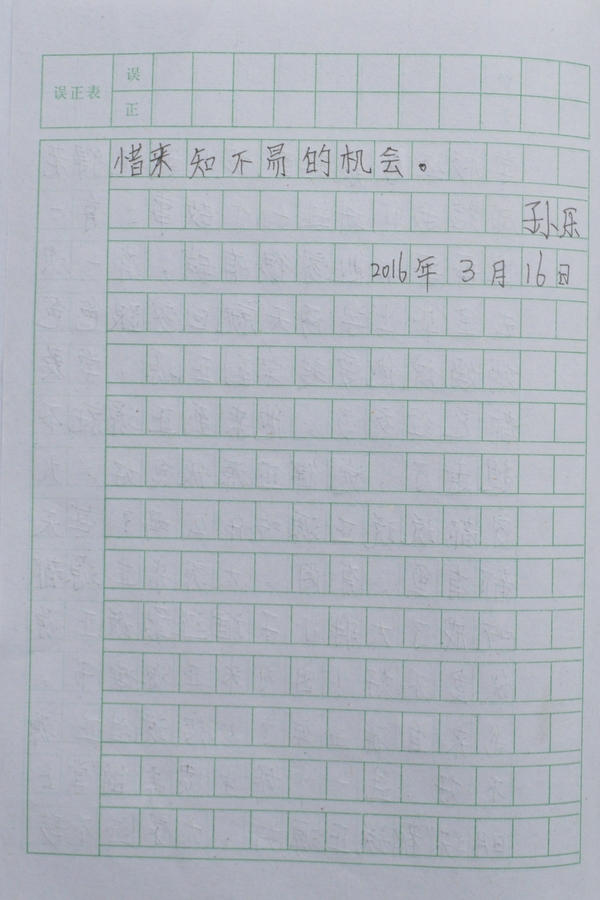 误正表
误
正
惜来知不易的机会。
孙乐
2016年3月16日